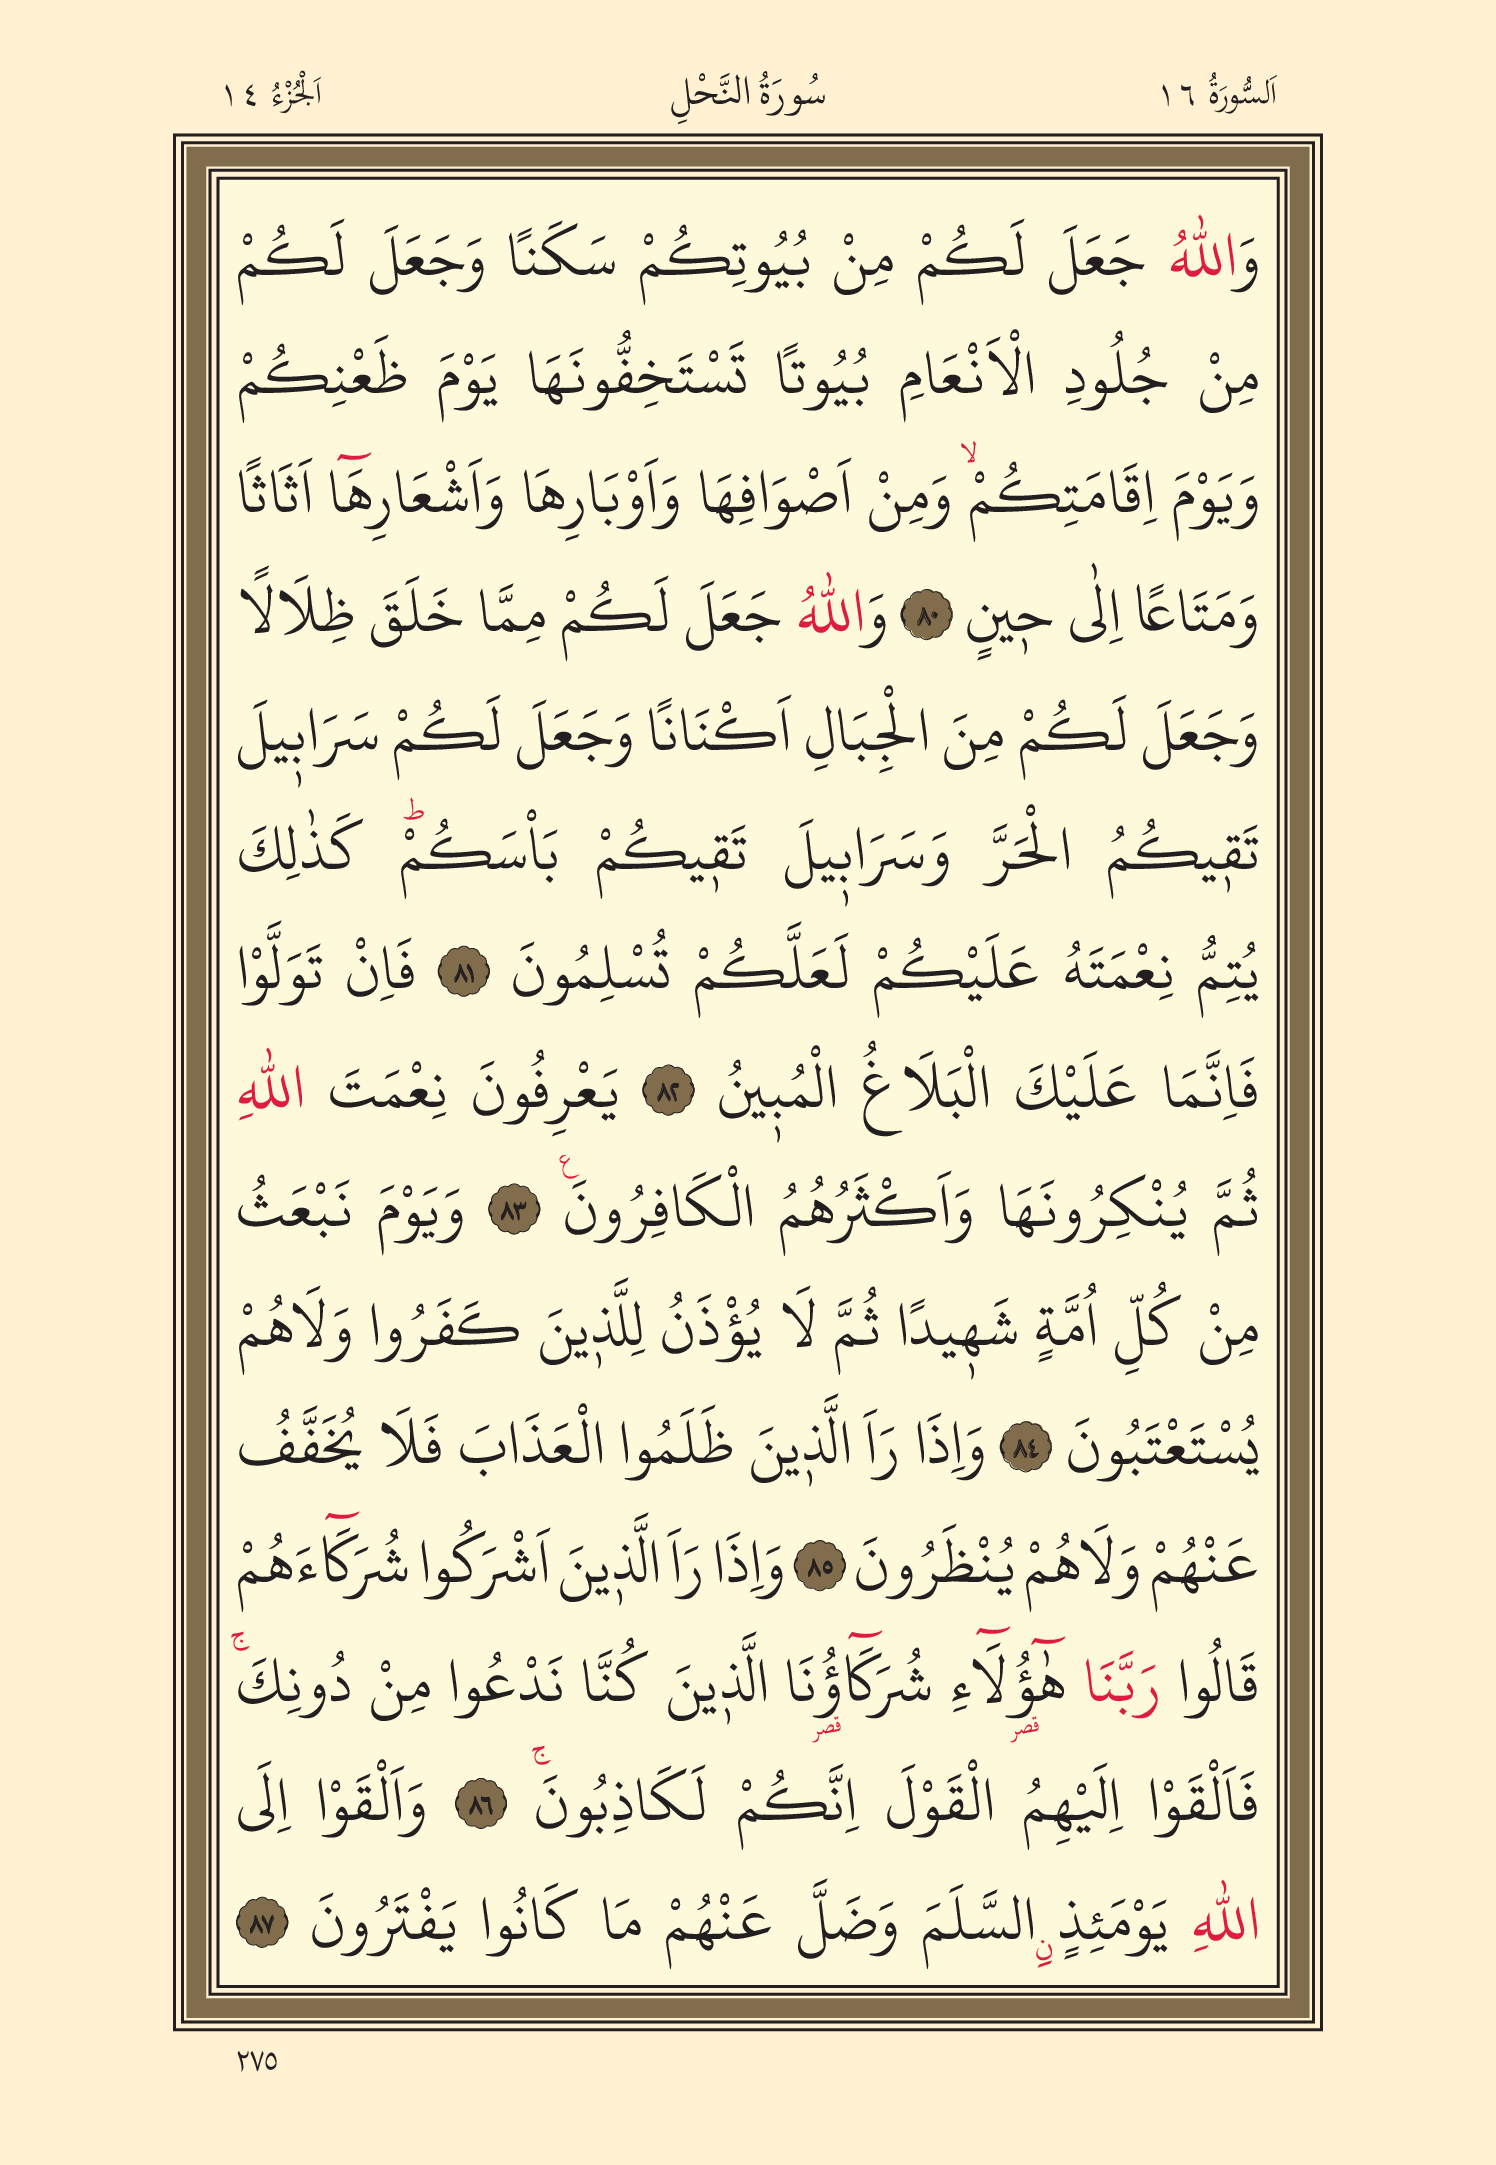 اَلسُّورَةُ ١٦ سُورَةُ النَّحْلِ اَلْجُزْءُ ١٤
وَاللّٰهُ جَعَلَ لَكُمْ مِنْ بُيُوتِكُمْ سَكَنًا وَجَعَلَ لَكُمْ
مِنْ جُلُودِ الْاَنْعَامِ بُيُوتًا تَسْتَخِفُّونَهَا يَوْمَ ظَعْنِكُمْ
وَيَوْمَ اِقَامَتِكُمْۙ وَمِنْ اَصْوَافِهَا وَاَوْبَارِهَا وَاَشْعَارِهَٓا اَثَاثًا
وَمَتَاعًا اِلٰى ح۪ينٍ ﴿٨٠﴾ وَاللّٰهُ جَعَلَ لَكُمْ مِمَّا خَلَقَ ظِلَالًا
وَجَعَلَ لَكُمْ مِنَ الْجِبَالِ اَكْنَانًا وَجَعَلَ لَكُمْ سَرَاب۪يلَ
تَق۪يكُمُ الْحَرَّ وَسَرَاب۪يلَ تَق۪يكُمْ بَاْسَكُمْۜ كَذٰلِكَ
يُتِمُّ نِعْمَتَهُ عَلَيْكُمْ لَعَلَّكُمْ تُسْلِمُونَ ﴿٨١﴾ فَاِنْ تَوَلَّوْا
فَاِنَّمَا عَلَيْكَ الْبَلَاغُ الْمُب۪ينُ ﴿٨٢﴾ يَعْرِفُونَ نِعْمَتَ اللّٰهِ
ثُمَّ يُنْكِرُونَهَا وَاَكْثَرُهُمُ الْكَافِرُونَ ع ﴿٨٣﴾ وَيَوْمَ نَبْعَثُ
مِنْ كُلِّ اُمَّةٍ شَه۪يدًا ثُمَّ لَا يُؤْذَنُ لِلَّذ۪ينَ كَفَرُوا وَلَاهُمْ
يُسْتَعْتَبُونَ ﴿٨٤﴾ وَاِذَا رَاَ الَّذ۪ينَ ظَلَمُوا الْعَذَابَ فَلَا يُخَفَّفُ
عَنْهُمْ وَلَاهُمْ يُنْظَرُونَ ﴿٨٥﴾ وَاِذَا رَاَ الَّذ۪ينَ اَشْرَكُوا شُرَكَٓاءَهُمْ
قَالُوا رَبَّنَا هٰٓؤُ۬لَٓاءِ شُرَكَٓاؤُ۬نَا الَّذ۪ينَ كُنَّا نَدْعُوا مِنْ دُونِكَۚ
قصر قصر
فَاَلْقَوْا اِلَيْهِمُ الْقَوْلَ اِنَّكُمْ لَكَاذِبُونَۚ ﴿٨٦﴾ وَاَلْقَوْا اِلَى
اللّٰهِ يَوْمَئِذٍ نِ السَّلَمَ وَضَلَّ عَنْهُمْ مَا كَانُوا يَفْتَرُونَ ﴿٨٧﴾
٢٧٥